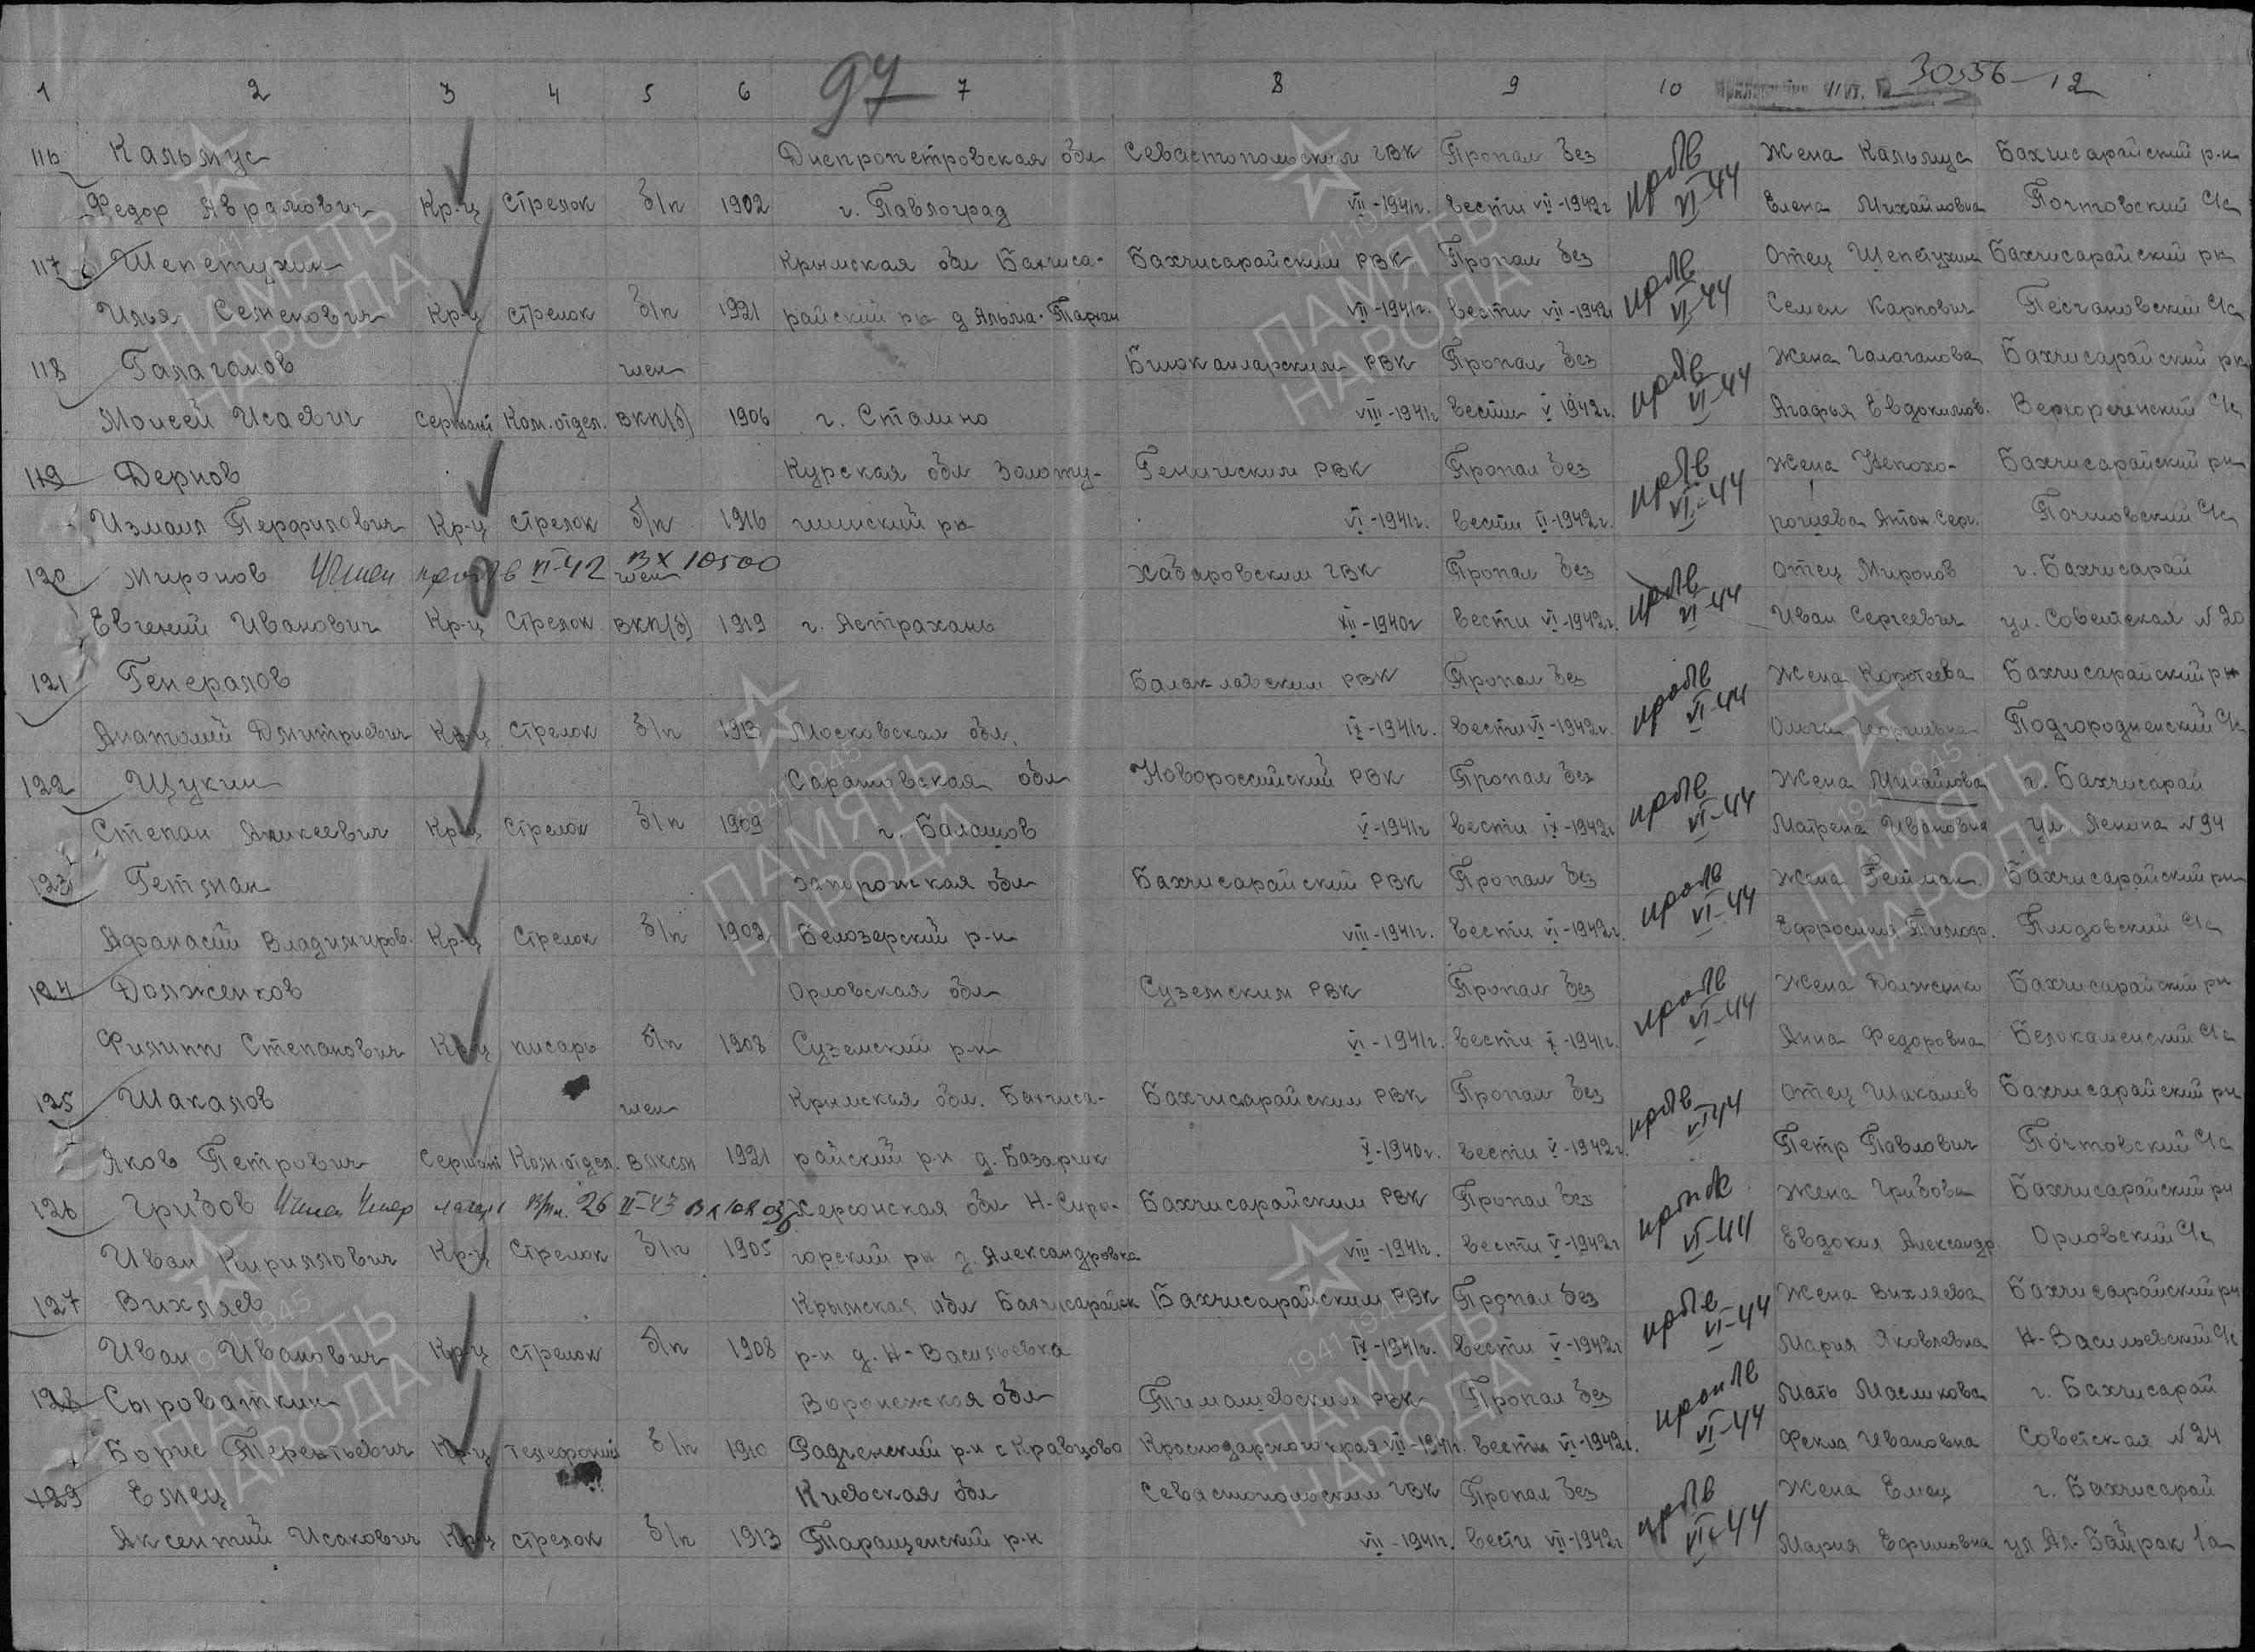 97
30556 12
1 2 3 4 5 6 7 8 9 10
116 Кальмус Днепропетровская обл Севастопольским ГВК Пропал без Жена Кальмус Бахчисарайский р-н
Федор Аврамович Кр-ц Стрелок б/п 1902 г. Павлоград VII-1941г. вести VII-1942г VI-44 Елена Михайловна Почтовский С/с
117 Шепетухин Крымская обл Бахчиса- Бахчисарайским РВК Пропал без Отец Шепетухин Бахчисарайский рн
Илья Семенович Кр-ц стрелок б/п 1921 райский рн д Альма-Тархан VII-1941г. вести VII-1942г VI-44 Семен Карпович Песчановский С/с
118 Галаганов член Биюконларским РВК Пропал без Жена Галаганова Бахчисарайский рн
Моисей Исаевич Сержант Ком.отдел. ВКП(б) 1906 г. Сталино VIII-1941г вести V 1942г. VI-44 Агафья Евдокимов. Верхореченский С/с
119 Дернов Курская обл Золоту- Геническим РВК Пропал без Жена Непохо- Бахчисарайский рн
Измаил Перфилович Кр-ц стрелок б/п 1916 хинский рн VI-1941г. вести II-1942г. VI-44 Антон. Серг. Почтовский С/с
120 Миронов VI-42 вх 10500 член Хабаровским ГВК Пропал без Отец Миронов г. Бахчисарай
Евгений Иванович Кр-ц Стрелок ВКП(б) 1919 г. Астрахань XII-1940г вести VI-1942г. VI-44 Иван Сергеевич ул. Советская N 20
121 Генералов Балаклавским РВК Пропал без Жена Коротеева Бахчисарайский рн
Анатолий Дмитриевич Кр-ц Стрелок б/п 1913 Московская обл. IX-1941г. вести VI-1942г. VI-44 Ольга Георгиевна Подгородненский С/с
122 Щукин Саратовская обл Новороссийский РВК Пропал без Жена Михайлова г. Бахчисарай
Степан Аникеевич Кр-ц Стрелок б/п 1909 г. Балашов V-1941г вести IX-1942г VI-44 Матрена Ивановна ул Ленина N 94
123 Гетман Запорожская обл Бахчисарайский РВК Пропал без Жена Гетман Бахчисарайский рн
Афанасий Владимиров. Кр-ц Стрелок б/п 1902 Белозерский р-н VIII-1941г. вести VI-1942г. VI-44 Ефросиния Тимоф. Плодовский С/с
124 Долженков Орловская обл Суземским РВК Пропал без Жена Долженко Бахчисарайский рн
Филипп Степанович Кр-ц писарь б/п 1908 Суземский р-н VI-1941г. вести X-1941г. VI-44 Анна Федоровна Белокаменский С/с
125 Шакалов член Крымская обл. Бахчиса- Бахчисарайским РВК Пропал без Отец Шакалов Бахчисарайский рн
Яков Петрович Сержант Ком.отдел. ВЛКСМ 1921 райский р-н д. Базарчик X-1940г. вести V-1942г. VI 44 Петр Павлович Почтовский С/с
126 Грибов 26 II-43 Херсонская обл Н-Серо- Бахчисарайским РВК Пропал без Жена Грибова Бахчисарайский рн
Иван Кириллович Кр-ц Стрелок б/п 1905 горский рн д. Александровка VIII-1941г. вести V-1942г VI-44 Евдокия Александр Орловский С/с
127 Вихляев Крымская обл Бахчисарайск Бахчисарайским РВК Пропал без Жена Вихляева Бахчисарайский рн
Иван Иванович Кр-ц стрелок б/п 1908 р-н д. Н-Васильевка IX-1941г. вести V-1942г VI-44 Мария Яковлевна Н-Васильевский С/с
128 Сыроваткин Воронежская обл Тимашевским РВК Пропал без Мать Масликова г. Бахчисарай
Борис Терентьевич Кр-ц телефонист б/п 1910 Радченский р-н с Кравцово Краснодарского края VII-1941г. вести VI-1942г. VI-44 Фекла Ивановна Советская N 24
129 Емец Киевская обл Севастопольским ГВК Пропал без Жена Емец г. Бахчисарай
Аксентий Исакович Кр-ц стрелок б/п 1913 Таращенский р-н VII-1941г. вести VII-1942г VI-44 Мария Ефимовна ул Ал-Байрак 1а
ПАМЯТЬ НАРОДА
1941-1945